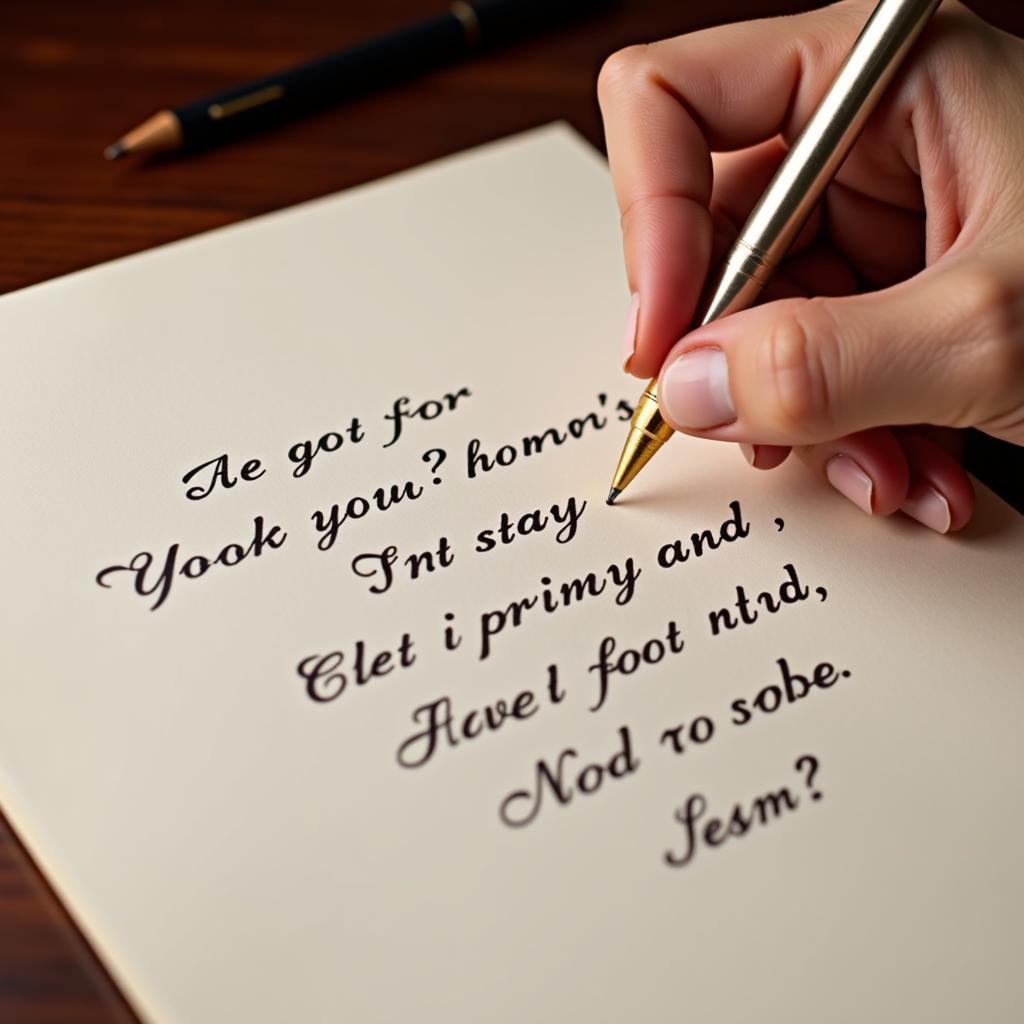 Ae got for
Yook you? homon's
Int stay
Clet i primy and ,
Acvel foot ntıd,
Nod ro sobe.
Sesm?